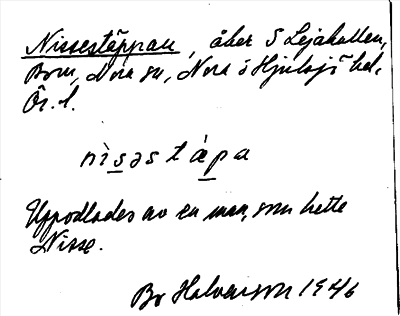 Nissestäppan, åker S Lejakullen,
Born, Nora sn, Nora o Hjulsjö hd,
Ör. l.
nìsəstápa
Uppodlades av en man, som hette
Nisse.
Br Halvarson 1946